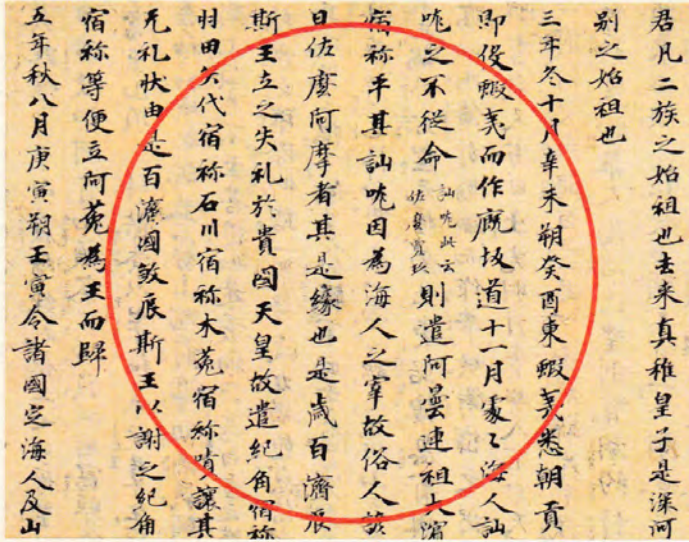 君凡二族之始祖也去来真稚皇子是深河
別之始祖也
三年冬十月辛未朔癸酉東蝦夷悉朝貢
即役蝦夷而作厩坂道十一月處〻海人訕
哤之不從命訕哤此云佐麼賣玖則遣阿曇連祖大濱
宿祢平其訕哤因為海人之宰故俗人諺
曰佐麼阿摩者其是縁也是歳百濟辰
斯王立之失礼於貴國天皇故遣紀角宿祢
羽田矢代宿祢石川宿祢木菟宿祢嘖讓其
无礼状由是百濟國殺辰斯王以謝之紀角
宿祢等便立阿菟為王而歸
五年秋八月庚寅朔壬寅令諸國定海人及山